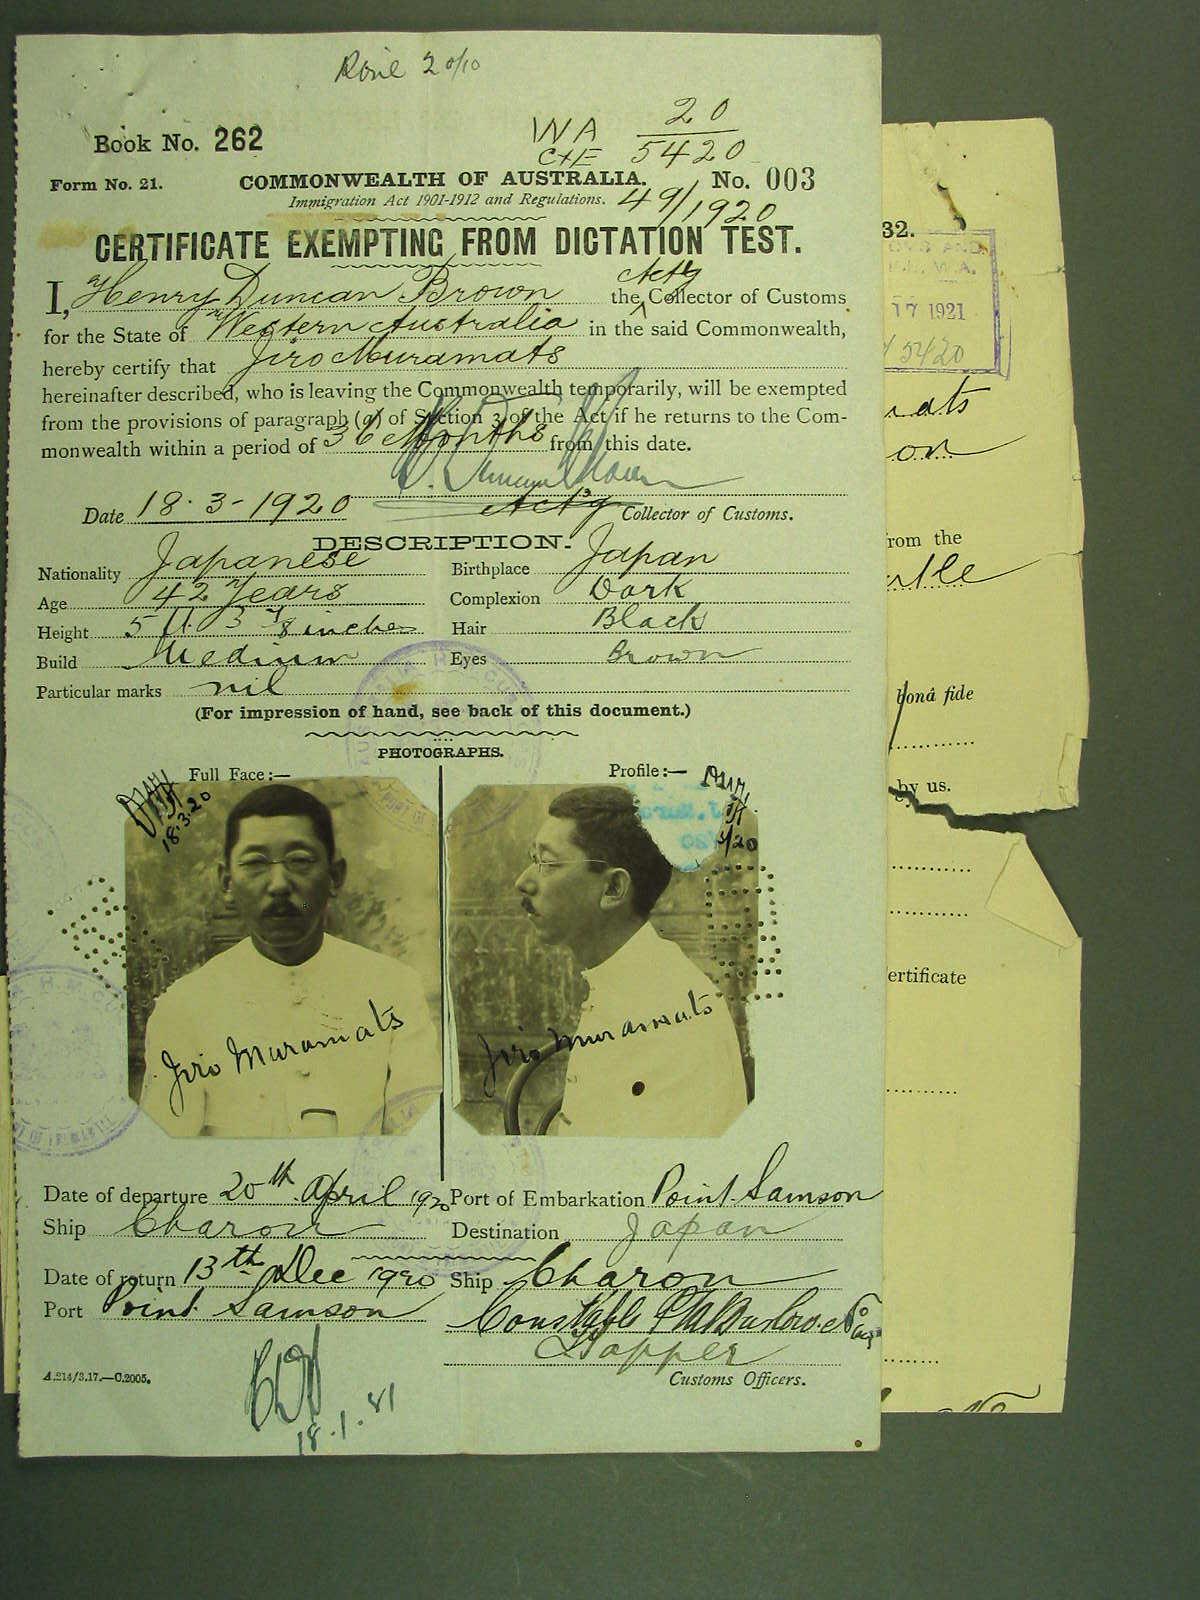 20/10
Book No. 262
WA 20
C&E 5420
Form No. 21. COMMONWEALTH OF AUSTRALIA. No. 003
Immigration Act 1901-1912 and Regulations. 49/1920
CERTIFICATE EXEMPTING FROM DICTATION TEST.
I, Henry Duncan Brown the Actg Collector of Customs
for the State of Western Australia in the said Commonwealth,
hereby certify that Jiro Muramats
hereinafter described, who is leaving the Commonwealth temporarily, will be exempted
from the provisions of paragraph (a) of Section 3 of the Act if he returns to the Com-
monwealth within a period of 36 Months from this date.
Date 18.3-1920 Actg Collector of Customs.
DESCRIPTION.
Nationality Japanese Birthplace Japan
Age 42 Years Complexion Dark
Height 5 ft 3 7/8 inches Hair Black
Build Medium Eyes Brown
Particular marks nil
(For impression of hand, see back of this document.)
PHOTOGRAPHS.
Full Face:— Profile:—
18.3.20
Jiro Muramats Jiro Muramats
Date of departure 20th April 1920 Port of Embarkation Point Samson
Ship Charon Destination Japan
Date of return 13th Dec 1920 Ship Charon
Port Point Samson Constable
A.214/3.17.—C.2005. Customs Officers.
32.
17 1921
5420
ats
on
rom the
bonâ fide
by us.
ertificate